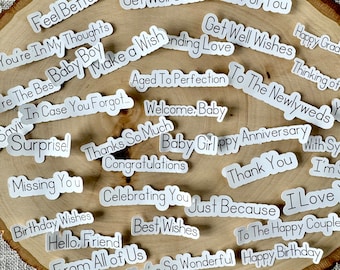 Feel Better
Get Well
You
You're In My Thoughts
Make a Wish
Sending Love
Get Well Wishes
Happy Grad
Baby Boy
Thinking of
You're The Best
Aged To Perfection
To The Newlyweds
In Case You Forgot
Welcome, Baby
Surprise!
Thanks So Much
Baby Girl
Happy Anniversary
With Sy
Congratulations
Thank You
I'm
Missing You
Celebrating You
Just Because
I Love
Birthday Wishes
Best Wishes
To The Happy Couple
Hello, Friend
From All of Us
So Wonderful
Happy Birthday